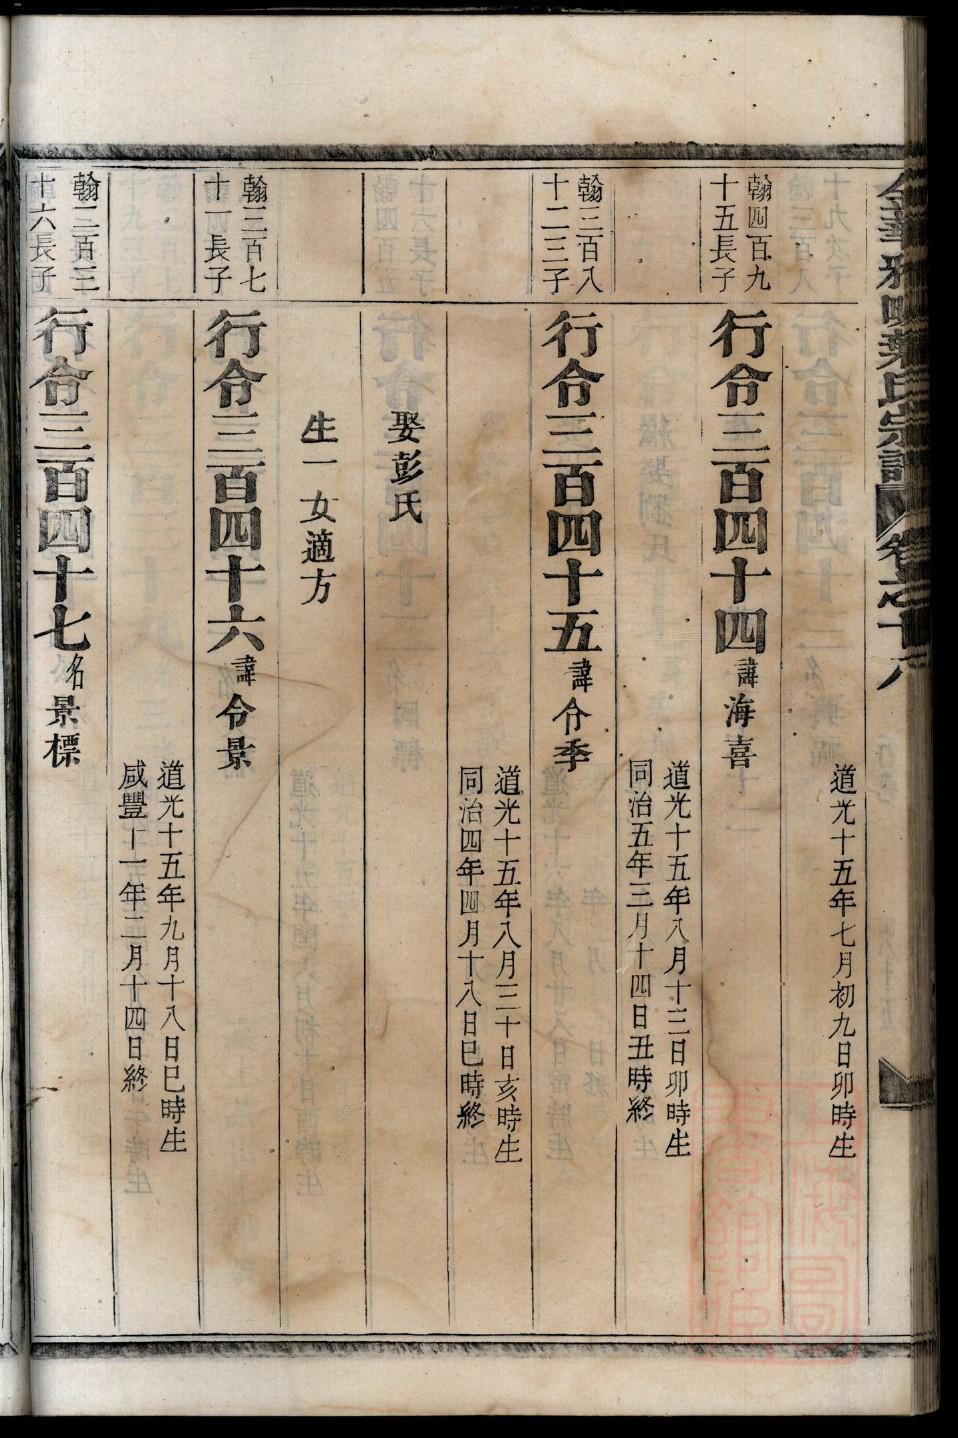 道光十五年七月初九日卯時生
翰四百九
十五長子
行令三百四十四諱海喜
道光十五年八月十二日卯時生
同治五年三月十四日丑時終
翰三百八
十二三子
行令三百四十五諱令季
道光十五年八月三十日亥時生
同治四年四月十八日巳時終
娶彭氏
生一女適方
翰三百七
十一長子
行令三百四十六諱令景
道光十五年九月十八日巳時生
咸豐十一年二月十四日終
翰三百三
十六長子
行令三百四十七名景標